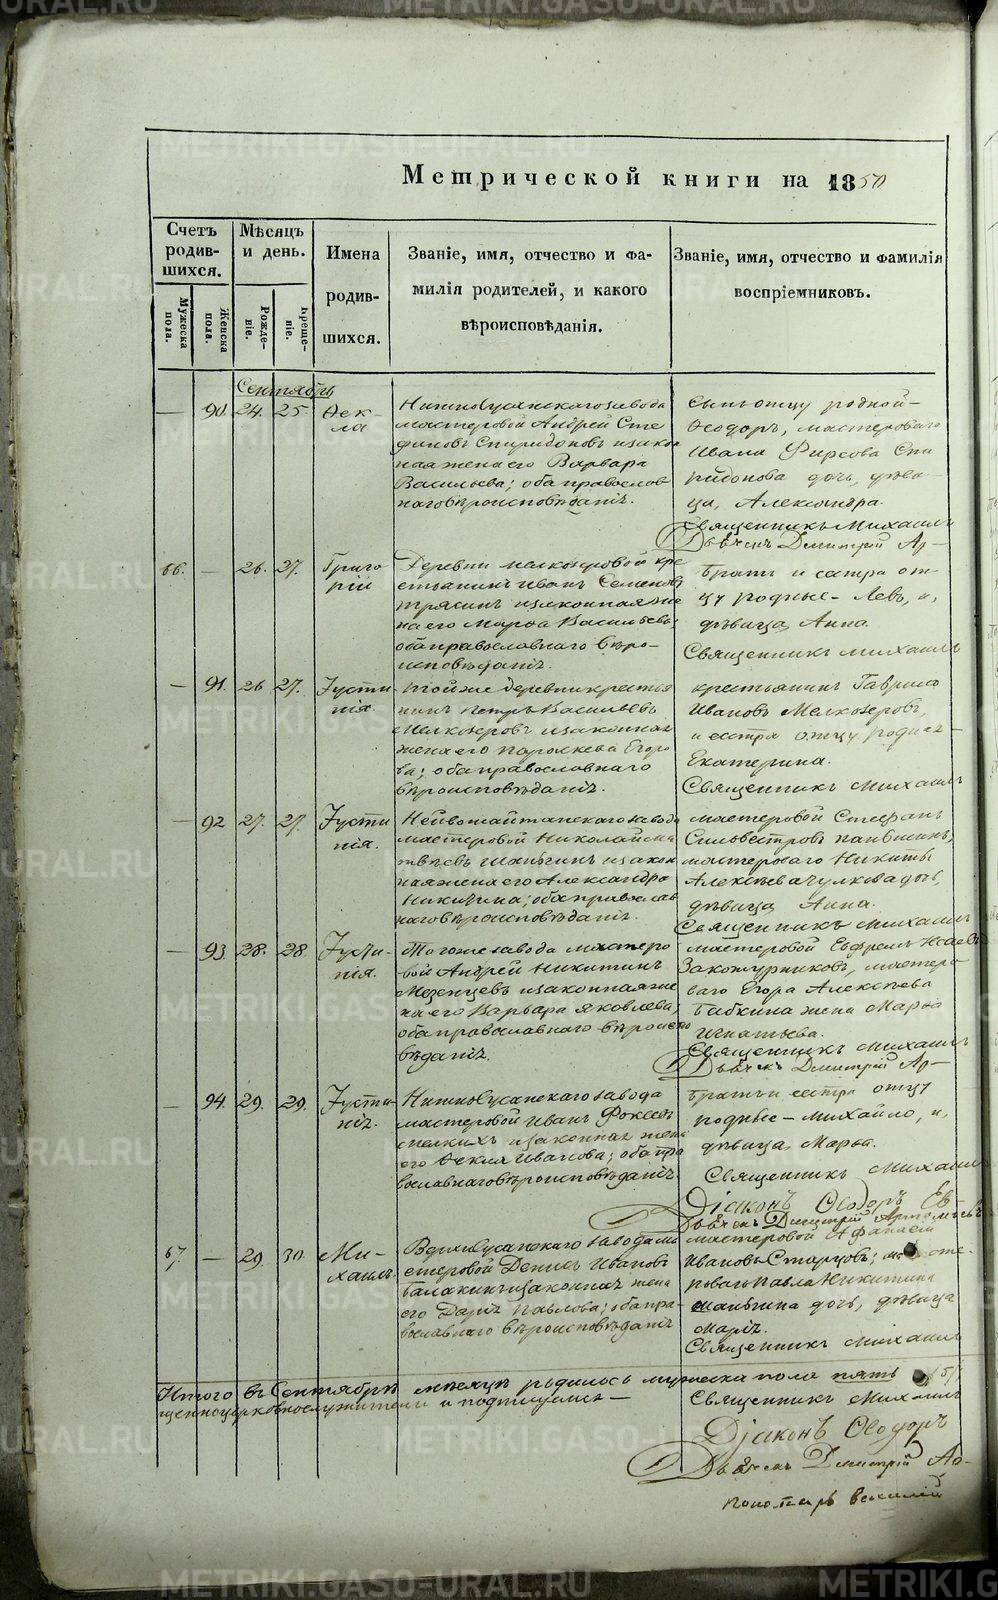 Метрической книги на 1850
Счетъ родившихся.
Мѣсяцъ и день.
Имена родившихся.
Званіе, имя, отчество и фамилія родителей, и какого вѣроисповѣданія.
Званіе, имя, отчество и фамилія воспріемниковъ.
Мужеска пола.
Женска пола.
Рожденіе.
Крещеніе.
Сентябрь
— 90. 24. 25 Ѳек-
ла
Нижнесусанскаго завода
мастеровой Андрей Сте
фановъ Спиридоновъ и закон
ная жена его Варвара
Васильева; оба православ
наго вѣроисповѣданія.
отцу родной
Ѳеодоръ, мастероваго
Ивана Фирсова Спи
ридонова дочь, дѣви-
ца, Александра.
Священникъ Михаилъ
Дьячекъ Димитрій Ар-
66. — 26. 27. Григо
рій
Деревни Мелкозеровой кре
стьянинъ Иванъ Семеновъ
Трясинъ и законная же
на его Марѳа Васильева;
оба православнаго вѣро-
исповѣданія.
Братъ и сестра от-
цу родные - Левъ, и,
дѣвица, Анна.
Священникъ Михаилъ
— 91. 26 27. Іусти
нія.
Той же деревни крестья
нинъ Петръ Васильевъ
Мелкозеровъ и законная
жена его Парасковья Егоро
ва; оба православнаго
вѣроисповѣданія.
крестьянинъ Гаврило
Ивановъ Мелкозеровъ,
и сестра отцу родная
Екатерина.
Священникъ Михаилъ
— 92 27. 27. Іусти
нія.
Нейвошайтанскаго завода
мастеровой Николай Ма
твѣевъ Шаньгинъ и закон
ная жена его Александра
Никитина; оба православ
наго вѣроисповѣданія.
мастеровой Стефанъ
Сильвестровъ
мастероваго Никиты
Алексѣева Чулкова дочь,
дѣвица, Анна.
Священникъ Михаилъ
— 93 28. 28. Іусти-
нія.
Того же завода мастеро
вой Андрей Никитинъ
Мезенцевъ и законная же
на его Варвара Яковлева;
оба православнаго вѣроиспо
вѣданія.
мастеровой Евфремъ Исаевъ
Закожурниковъ, мастеро-
ваго Егора Алексѣева
Бабкина жена Марѳа
Игнатьева.
Священникъ Михаилъ
Дьячекъ Димитрій Ар-
— 94. 29. 29. Іусти-
нія.
Нижнесусанскаго завода
мастеровой Иванъ Фокеевъ
и законная жена
его Ѳекла Иванова; оба пра
вославнаго вѣроисповѣданія.
Братъ и сестра отцу
родные — Михайло, и,
дѣвица, Марѳа.
Священникъ Михаилъ
Діаконъ Ѳеодоръ Ев
Дьячекъ Димитрій Артемьевъ
67. — 29. 30. Ми-
хаилъ.
завода ма
стеровой Денисъ Ивановъ
Балакинъ и законная жена
его Дарья Павлова; оба пра-
вославнаго вѣроисповѣданія
мастеровой Афанасій
Ивановъ Старцовъ; мастеро-
ваго Павла Никитина
Шаньгина дочь, дѣвица
Марья.
Священникъ Михаилъ
Итого въ Сентябрѣ мѣсяцѣ родилось мужеска пола пять (5)
щенноцерковнослужители и подписуемся —
Священникъ Михаилъ
Діаконъ Ѳеодоръ
Дьячекъ Димитрій Ар-
Пономарь Василій
METRIKI.GASO-URAL.RU